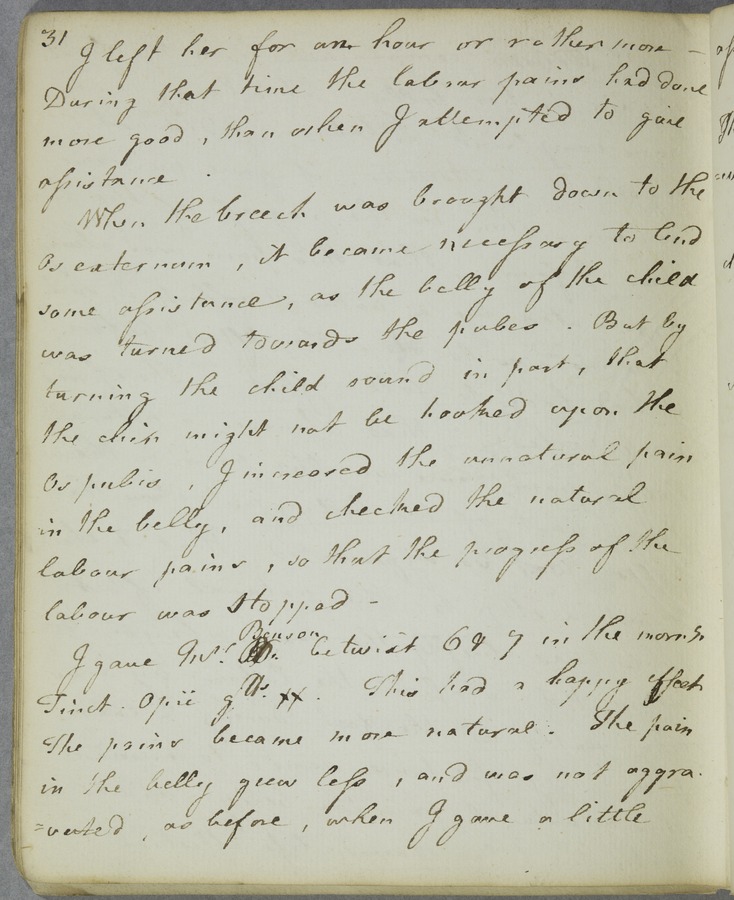 31
I left her for an hour or rather more –
During that time the labour pains had done
more good, than when I attempted to give
assistance.
When the breech was brought down to the
Os externum, it became necessary to lend
some assistance, as the belly of the child
was turned towards the pubes. But by
turning the child round in part, that
the chin might not be hooked upon the
Os pubis, I increased the unnatural pain
in the belly, and checked the natural
labour pains, so that the progress of the
labour was stopped –
Benson
I gave Mrs. betwixt 6 & 7 in the morng
Tinct. Opii gtts. xx. This had a happy effect
The pains became more natural. The pain
in the belly grew less, and was not aggra-
=vated, as before, when I gave a little